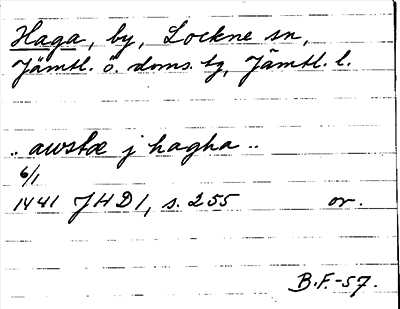 Haga, by, Lockne sn,
Jämtl. ö. doms. tg, Jämtl. l.
.. awstæ j hagha ..
6/1
1441 JHD 1, s. 255 or.
B.F.-57.